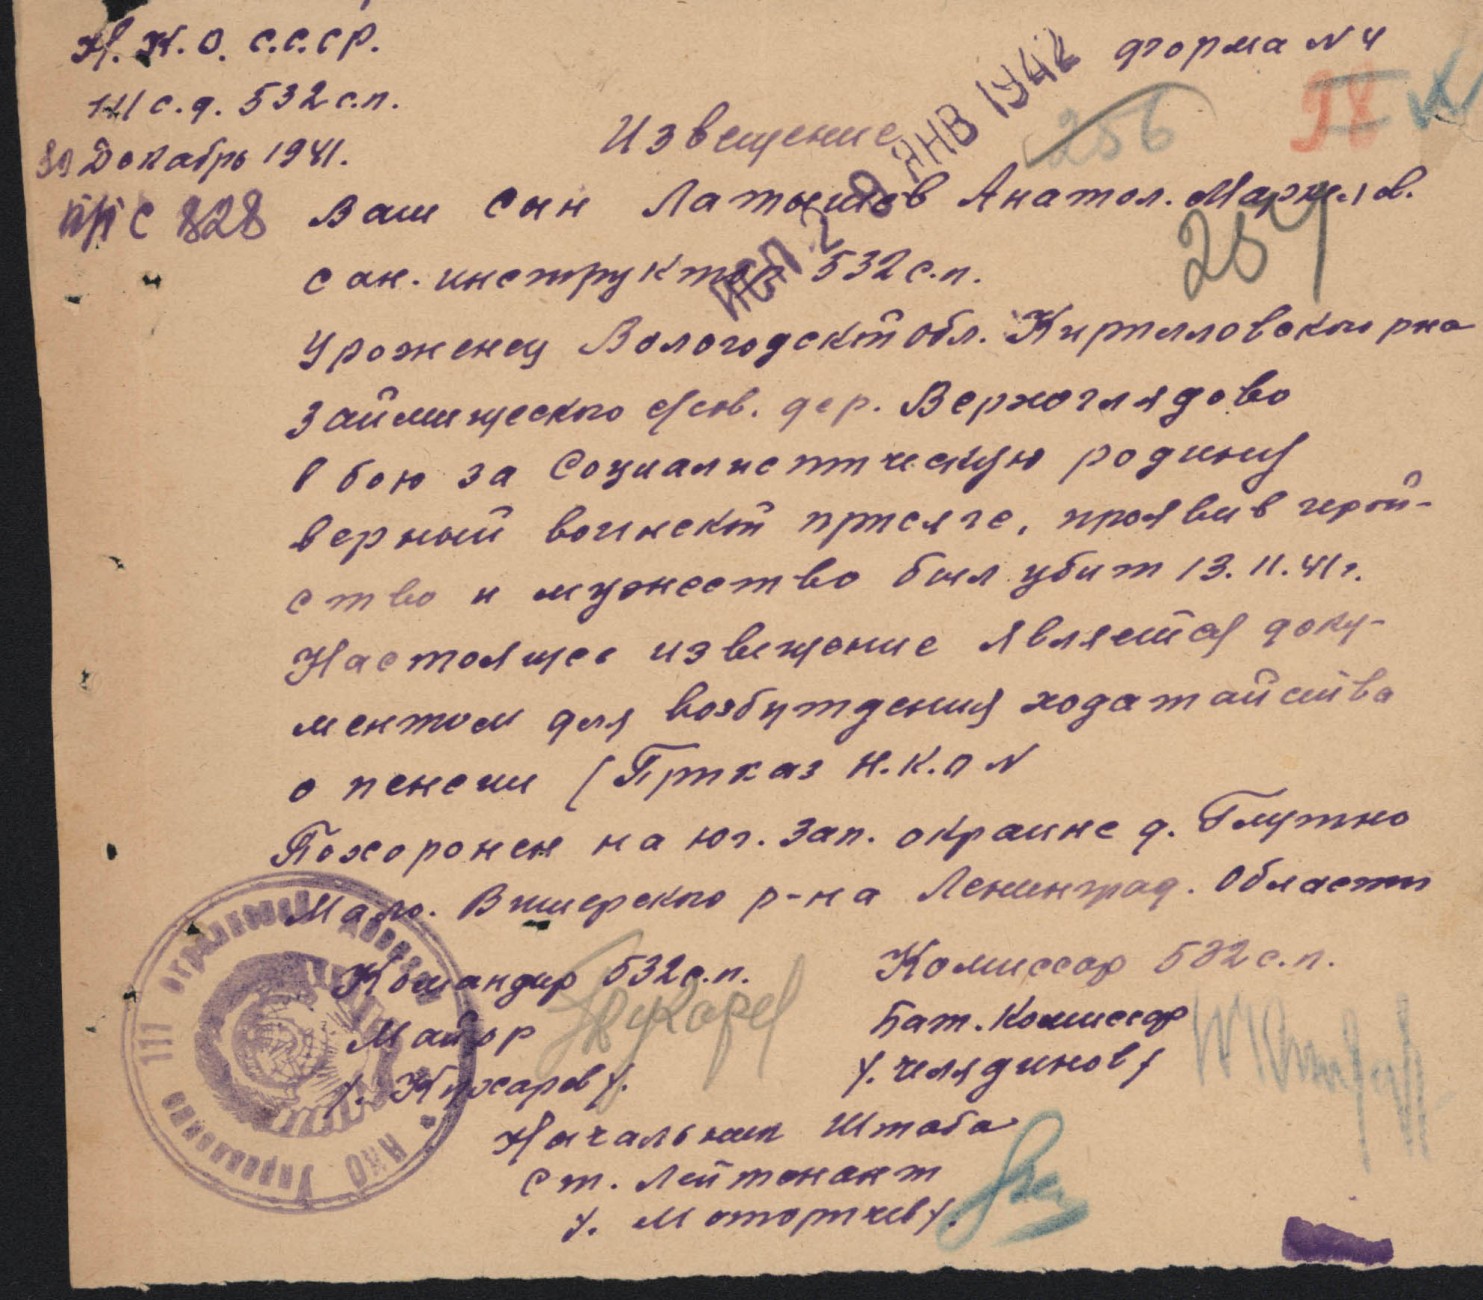 Н.К.О. С.С.С.Р.
форма N 4
111 с.д. 532 с.п.
30 Декабрь 1941.
Извещение
20 ЯНВ 1942
256
98
254
828
Ваш сын Латышов Анатол. Маркелов.
сан. инструктор 532 с.п.
Уроженец Вологодской обл. Кирилловского рна
Займищеского с/сов. дер. Верхоглядово
в бою за Социалистическую родину
верный воинской присяге, проявив герой-
ство и мужество был убит 13.11.41г.
Настоящее извещение является доку-
ментом для возбуждения ходатайства
о пенсии (Приказ Н.К.О N
Похоронен на юг. зап. окраине д. Глутно
Мало. Вишерского р-на Ленинград. Области
Командир 532 с.п.
Майор
Комиссар 532 с.п.
Бат. Комиссар
/. Челядинов/
Начальник Штаба
Ст. Лейтенант
Управление 111 стрелковой дивизии НКО